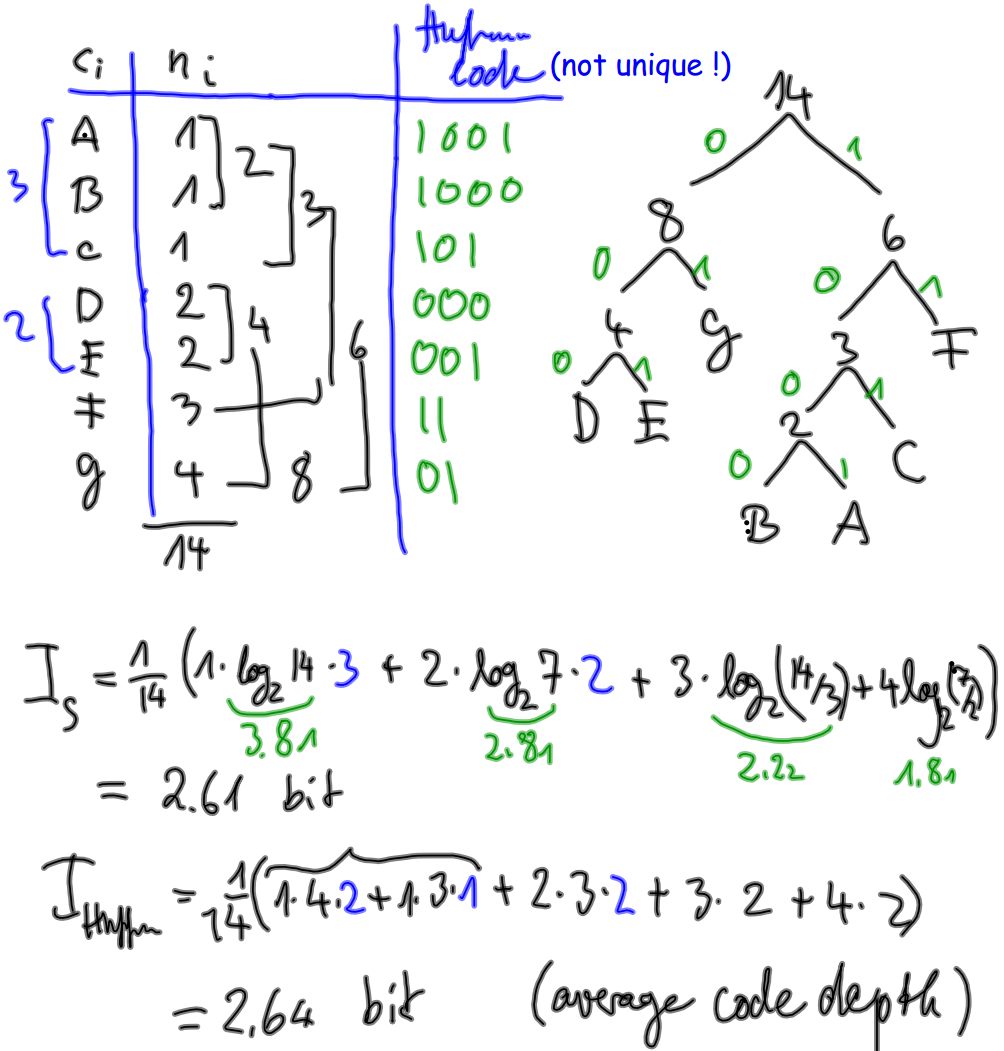 ci ni Huffman code (not unique !)
A 1 1001
B 1 1000
C 1 101
D 2 000
E 2 001
F 3 11
G 4 01
14
3
2
2
3
4
6
8
14
0 1
8 6
0 1 0 1
4 G 3 F
0 1 0 1
D E 2 C
0 1
B A
I_S = 1/14 (1·log₂14·3 + 2·log₂7·2 + 3·log₂(14/3) + 4log₂(7/2))
3.81 2.81 2.22 1.81
= 2.61 bit
I_Huffm = 1/14 (1·4·2 + 1·3·1 + 2·3·2 + 3·2 + 4·2)
= 2,64 bit (average code depth)